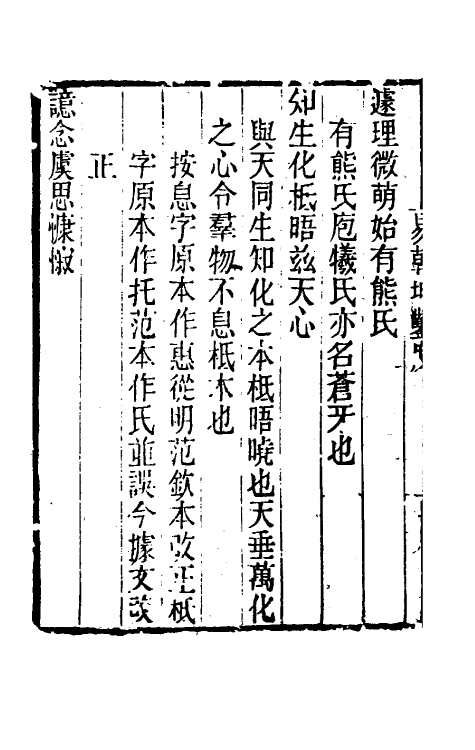 易乾坤鑿度
邃理微萌始有熊氏
有熊氏庖犧氏亦名蒼牙也
知生化柢晤兹天心
與天同生知化之本柢晤曉也天垂萬化
之心令羣物不息柢本也
按息字原本作惠從明范欽本改正柢
字原本作托范本作氐並誤今據文改
正
譩念虞思慷惙